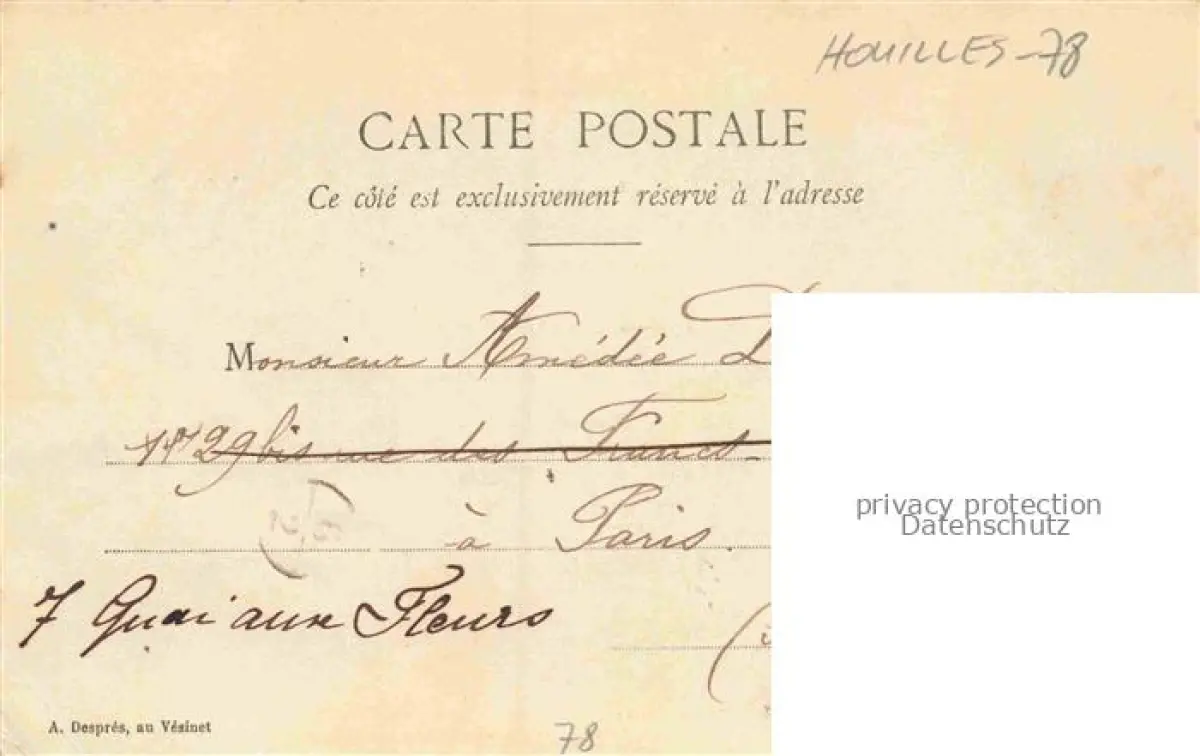 HOUILLES-78
CARTE POSTALE
Ce côté est exclusivement réservé à l'adresse
Monsieur Amédée
29 bis rue des Francs-
à Paris.
7 Quai aux Fleurs
privacy protection
Datenschutz
A. Després, au Vésinet
78